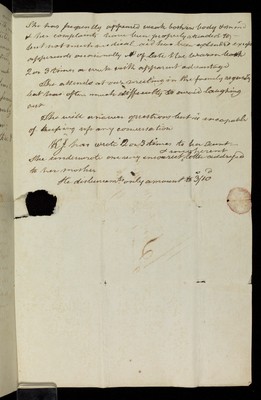 She has frequently appeared weak both in body & mind
& her complaints have been properly attended to,
but not much medical aid has been
occasionally & of late the warm bath
2 or 3 times a week with apparent advantage
She attends at our meeting in the family regularly
but has often much difficulty to avoid laughing
out
She will answer questions but is incapable
of keeping up any conversation
has wrote 2 or 3 times to her Aunt
She underwrote one very incoherent letter addressed
to her mother
He disbursements only amount to 3/10